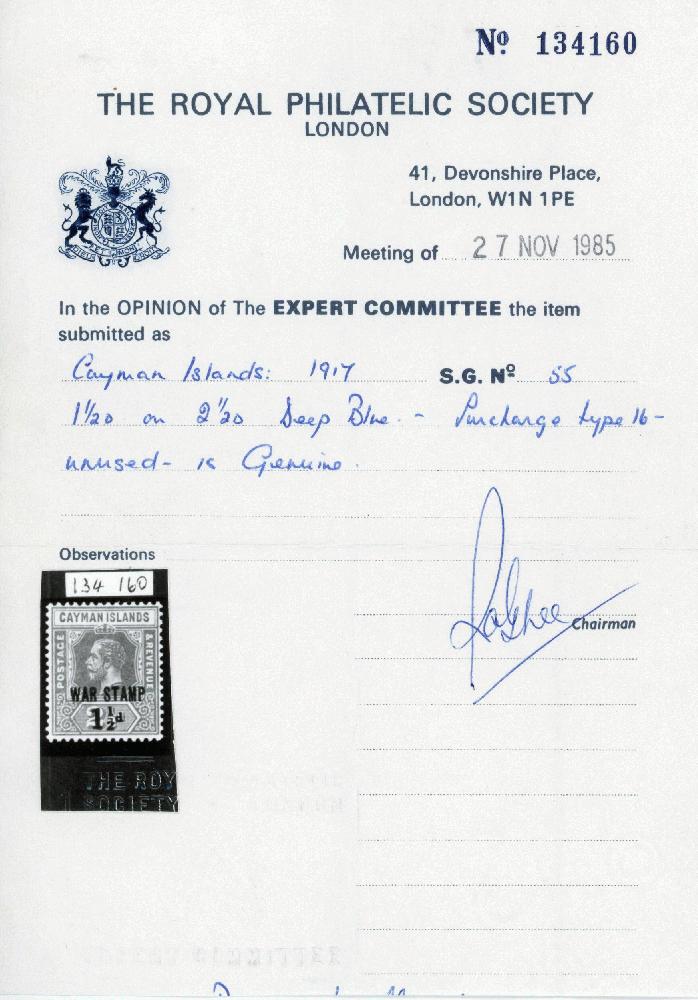 Nº 134160
THE ROYAL PHILATELIC SOCIETY
LONDON
41, Devonshire Place,
London, W1N 1PE
Meeting of 27 NOV 1985
In the OPINION of The EXPERT COMMITTEE the item
submitted as
Cayman Islands: 1917 S.G. Nº 55
1½d on 2½d Deep Blue. - Surcharge type 16 -
unused - is Genuine.
Observations
134 160
CAYMAN ISLANDS
POSTAGE & REVENUE
WAR STAMP
1½d
Chairman
THE ROY
SOCIETY